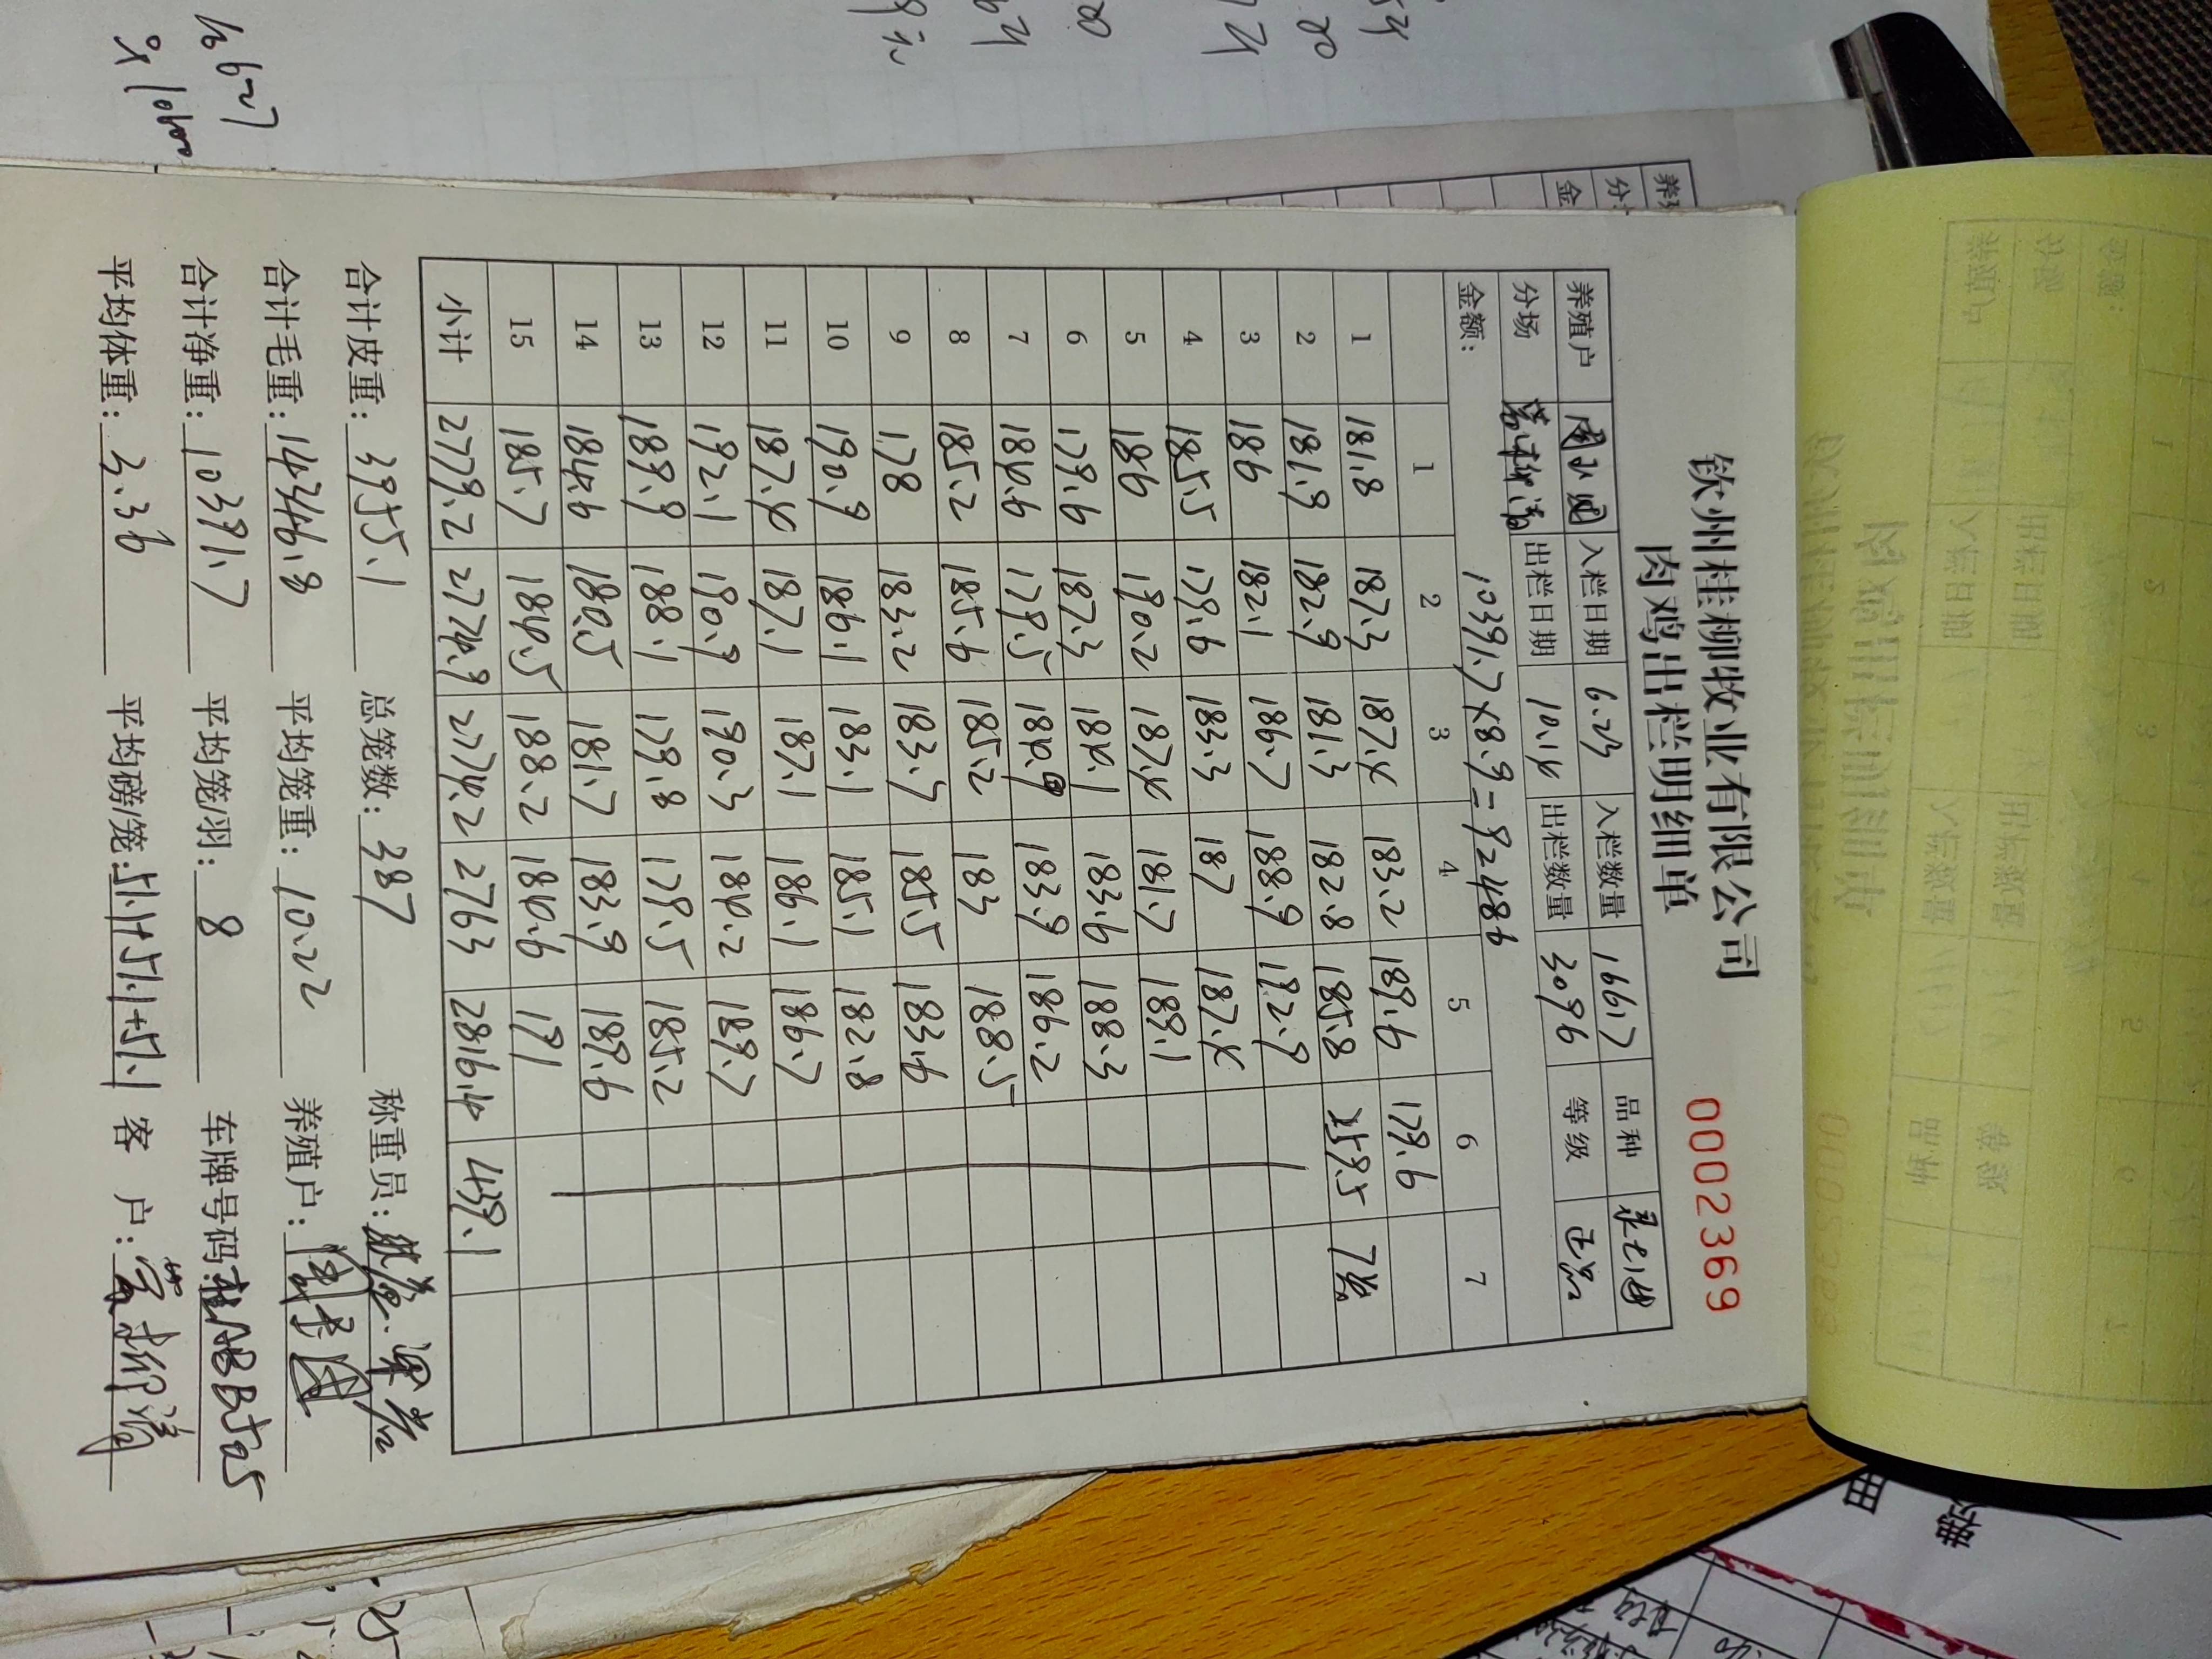 钦州桂柳牧业有限公司
肉鸡出栏明细单 0002369
养殖户 入栏日期 6.23 入栏数量 16617 品种
分场 出栏日期 10.14 出栏数量 3096 等级 正品
金额: 10391.7×8.9=92486
1 2 3 4 5 6 7
1 181.8 187.3 187.4 183.2 189.6 179.6
2 181.9 182.9 181.3 182.8 185.8
3 186 182.1 186.7 188.9 192.9
4 185.5 179.6 183.3 187 187.4
5 186 190.2 187.4 181.7 189.1
6 179.6 187.3 184.1 183.6 188.3
7 184.6 179.5 184.9 183.9 186.2
8 185.2 185.6 185.2 183 188.5
9 178 183.2 183.7 185.5 183.6
10 190.9 186.1 183.1 185.1 182.8
11 187.4 187.1 187.1 186.1 186.7
12 192.1 190.9 190.3 184.2 189.7
13 189.9 188.1 179.8 179.5 185.2
14 184.6 180.5 181.7 183.9 189.6
15 185.7 184.5 188.2 184.6 191
小计 2779.2 2774.9 2774.2 2763 2816.4 439.1
合计皮重: 3955.1 总笼数: 387 称重员:
合计毛重: 14346.8 平均笼重: 10.22 养殖户:
合计净重: 10391.7 平均笼/羽: 8 车牌号码:
平均体重: 3.36 平均磅/笼: 51.1+51.1+51.1 客户: